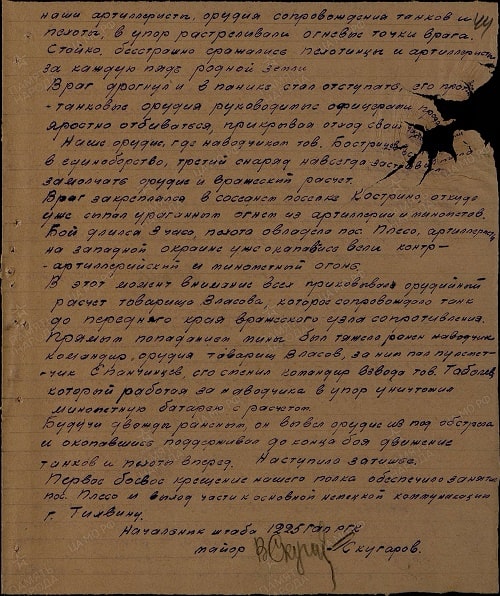 наши артиллеристы, орудия сопровождения танков и
пехоты, в упор расстреливали огневые точки врага.
Стойко, бесстрашно сражались пехотинцы и артиллеристы
за каждую пядь родной земли
Враг дрогнул и в панике стал отступать, его про
-танковые орудия руководимые офицерами
яростно отбивались, прикрывая отход свои
Наше орудие, где наводчиком тов. Бострик
в единоборство, третий снаряд навсегда заставил
замолчать орудие и вражеский расчет.
Враг закрепился в соседнем поселке Кострино, откуда
уже сыпал ураганным огнем из артиллерии и минометов.
Бой длился 3 часа, пехота овладела пос. Плесо, артиллеристы
на западной окраине уже окапавшись вели контр-
-артиллерийский и минометный огонь.
В этот момент внимание всех приковывал орудийный
расчет товарища Власова, которое сопровождало танк
до переднего края вражеского узла сопротивления.
Прямым попаданием мины был тяжело ранен наводчик
командир орудия товарищ Власов, за ним пал пулемет-
-чик Епанчинцев, его сменил командир взвода тов.
который работая за наводчика в упор уничтожил
минометную батарею с расчетом.
Будучи дважды раненым, он вывел орудие из под обстрела
и окопавшись поддерживал до конца боя движение
танков и пехоты вперед. Наступило затишье.
Первое боевое крещение нашего полка обеспечило занятие
пос. Плесо и выход части к основной немецкой коммуникации
г. Тилвину.
Начальник штаба 1225 Гап РГК
майор Скугаров.